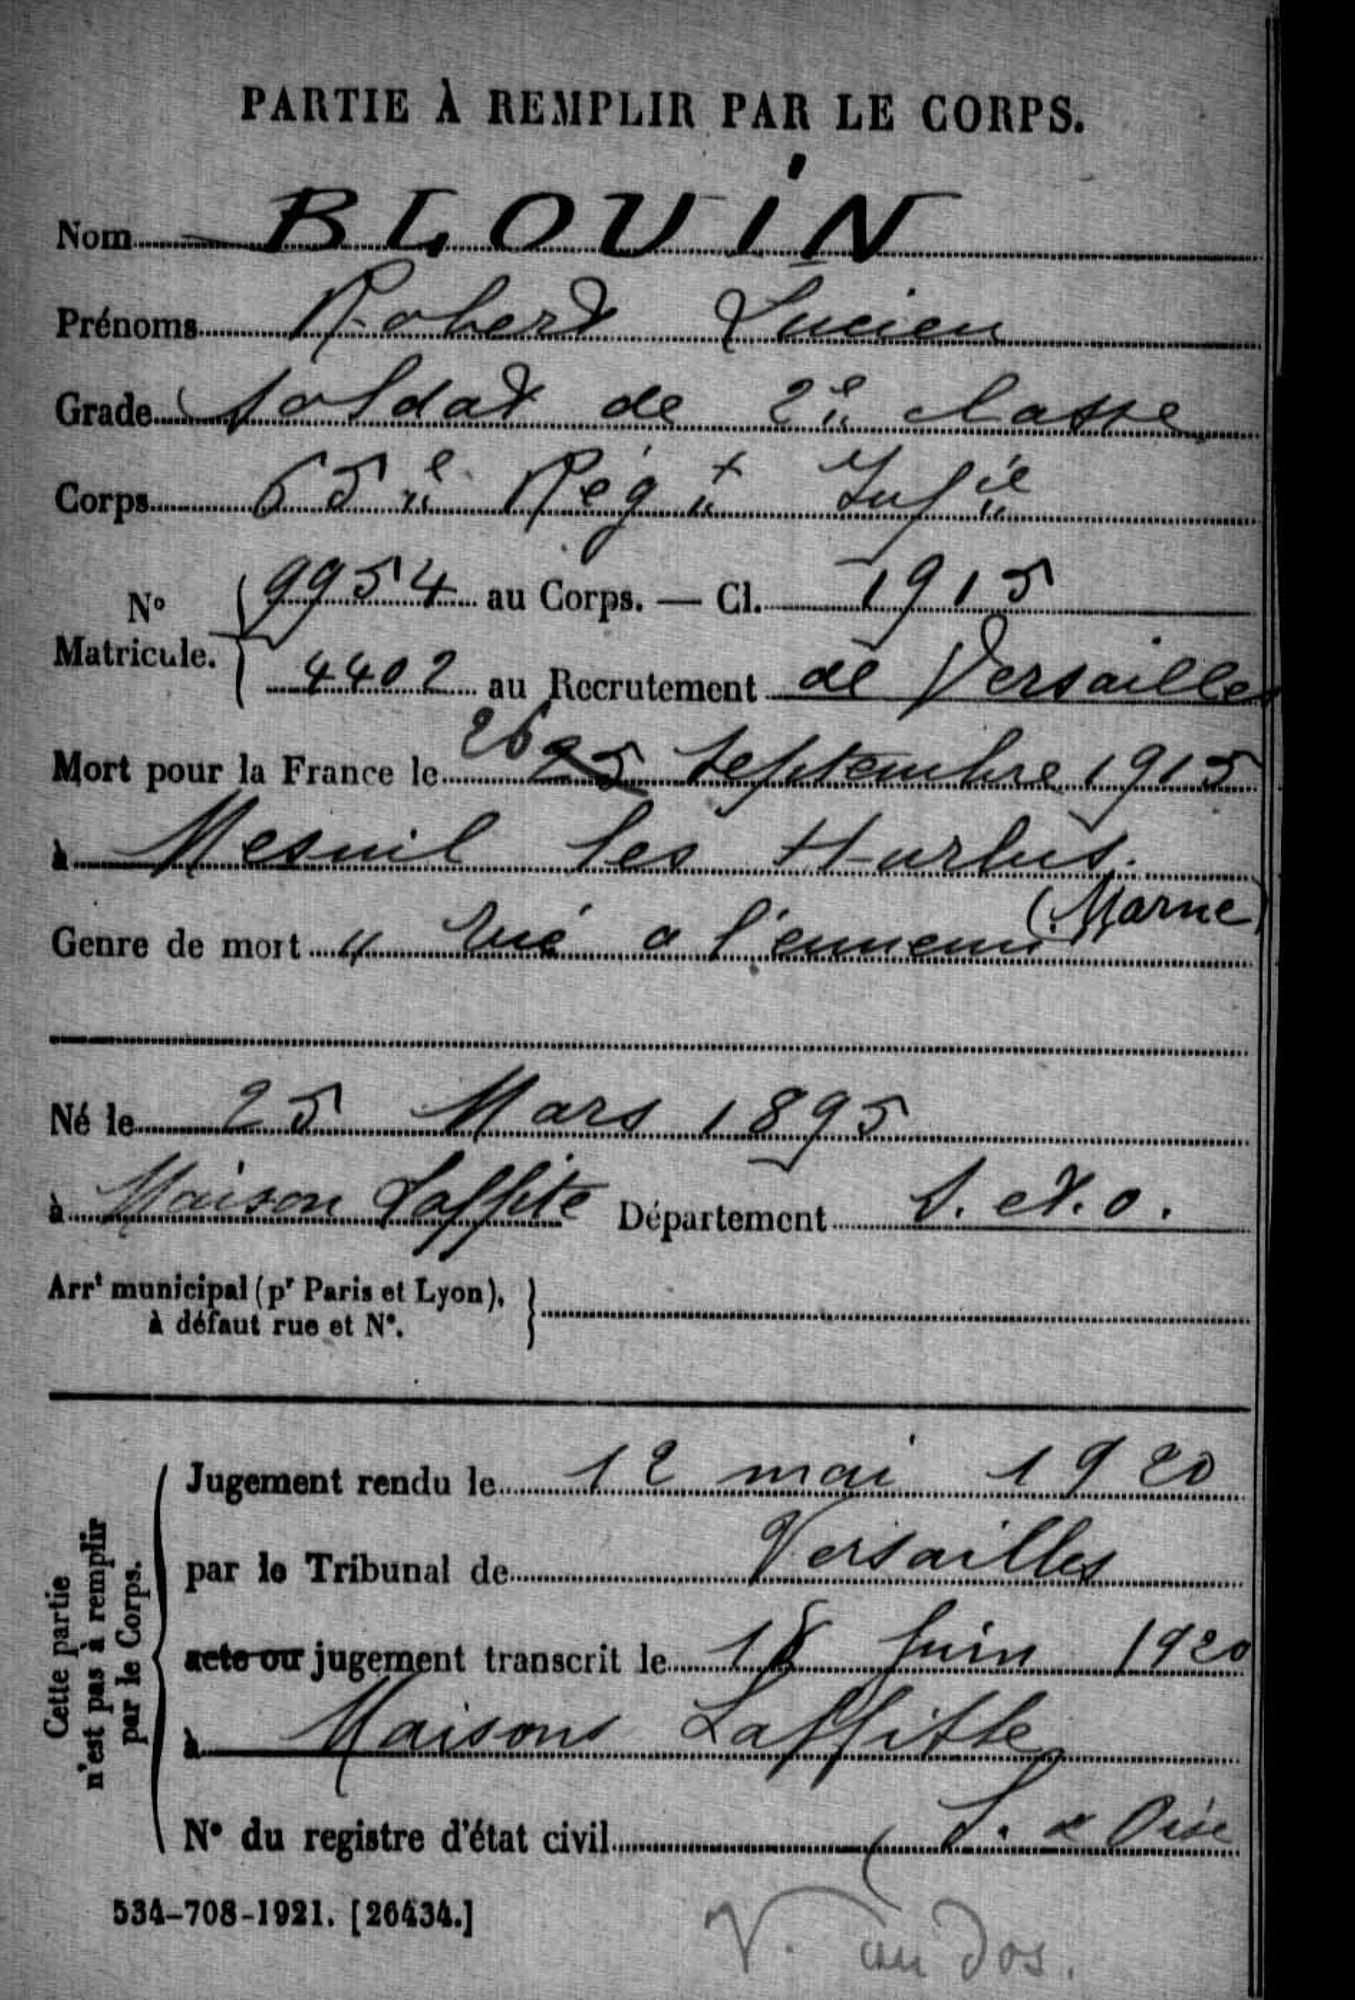 PARTIE À REMPLIR PAR LE CORPS.
Nom BLOUIN
Prénoms Robert Lucien
Grade Soldat de 2e classe
Corps 65e Régt Infie
N° Matricule. { 9954 au Corps. — Cl. 1915
4402 au Recrutement de Versailles
Mort pour la France le 26 25 Septembre 1915
à Mesnil les Hurlus.
(Marne)
Genre de mort " Tué a l'ennemi
Né le 25 Mars 1895
à Maison Laffite Département S. et. o.
Arrt municipal (pr Paris et Lyon), à défaut rue et N°. }
Cette partie n'est pas à remplir par le Corps.
Jugement rendu le 12 mai 1920
par le Tribunal de Versailles
acte ou jugement transcrit le 18 Juin 1920
à Maisons Laffitte
N° du registre d'état civil (S. & Oise
534-708-1921. [26434.]
V. au dos.